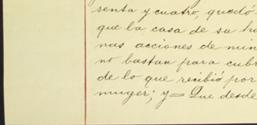 senta y cuatro, quedó
que la casa de su h
nas acciones de min
no bastan para cubr
de lo que recibió por
muger; y= Que desde